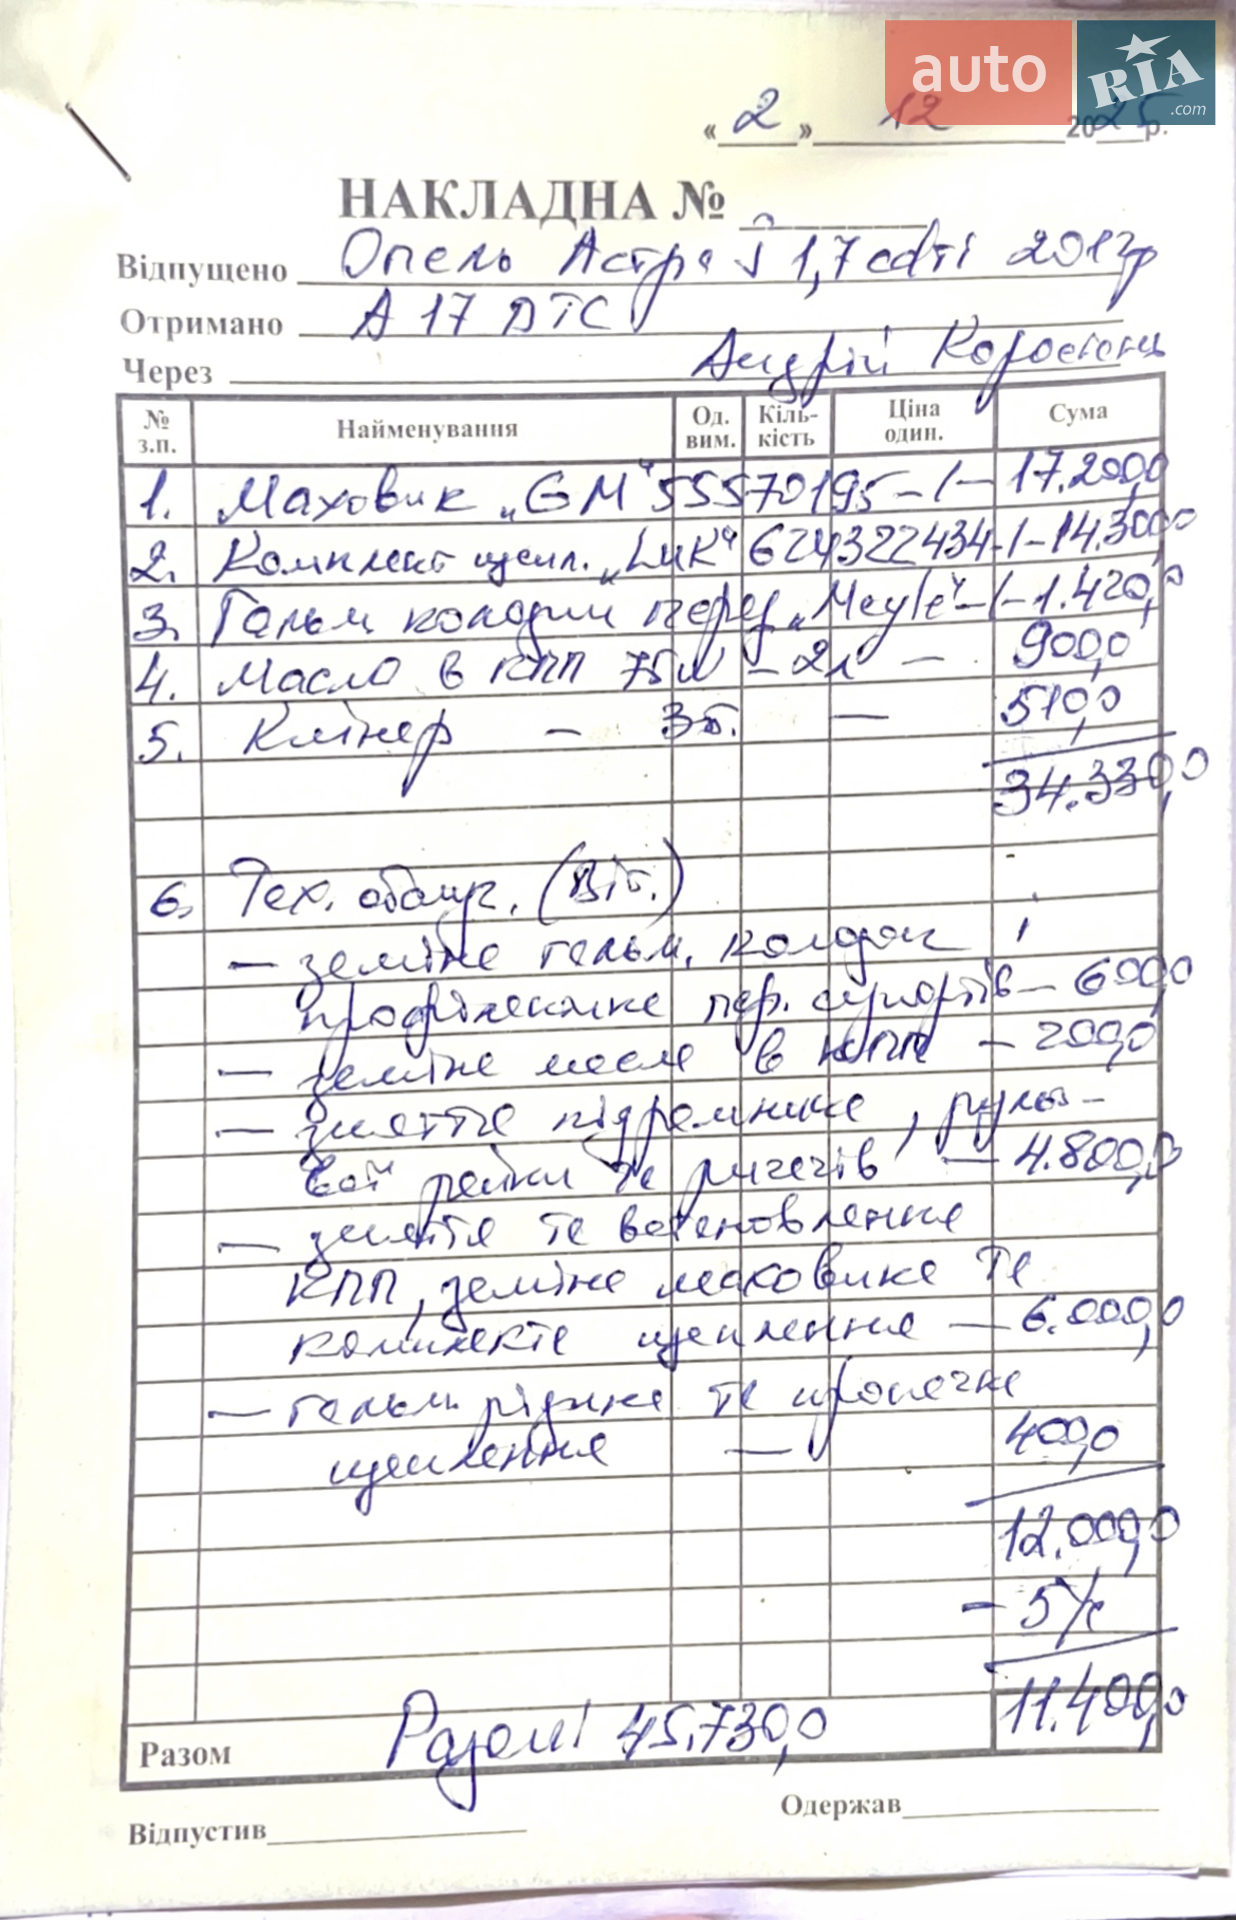 auto RIA .com
« 2 » 12 2025 р.
НАКЛАДНА №
Відпущено Опель Астра J 1,7 cdti 2012р
Отримано А 17 DTC
Через Андрій
№ з.п. Найменування Од. вим. Кіль-кість Ціна один. Сума
1. Маховик „GM“ 55570195 – 1 – 17.200,0
2. Комплект щепл. „LuK“ 624322434 - 1 - 14.300,0
3. Гальм колодки перед „Meyle“ – 1 – 1.420,0
4. Масло в КПП 75W – 2л – 900,0
5. Клінер – 3б. – 510,0
34.330,0
6. Тех. обслуг. (Віт.)
– заміна гальм. колодок
профілактика пер. супортів – 600,0
– заміна масла в КПП – 200,0
– зняття підрамника, рульо-
вої рейки та ричагів – 4.800,0
– зняття та встановлення
КПП, заміна маховика та
комплекта щеплення – 6.000,0
– гальм. рідина та прокачка
щеплення – 400,0
12.000,0
– 5%
11.400,0
Разом Разом: 45.730,0
Відпустив
Одержав